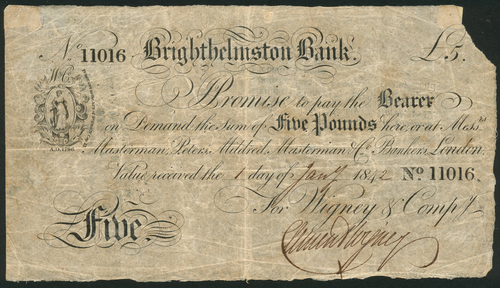 No. 11016 Brighthelmston Bank. £5.
W & Co.
Promise to pay the Bearer
on Demand the Sum of Five Pounds here, or at Messrs.
Masterman, Peters, Mildred, Masterman & Co. Bankers, London.
Value received the 1 day of Jany 1842 No 11016.
For Wigney & Compy.
Five.